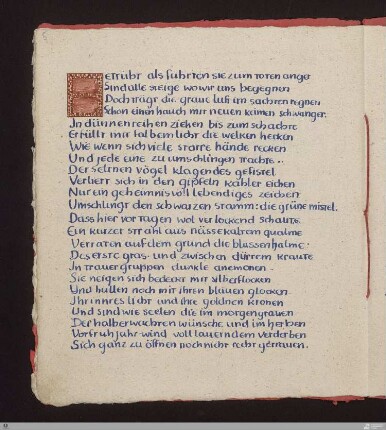 etrübt als führten sie zum toten anger
Sind alle steige wo wir uns begegnen
Doch trägt die graue luft im sachten regnen
Schon einen hauch mit neuen keimen schwanger.
In dünnen reihen ziehen bis zum schachte
Erfüllt mit halbem licht die welken hecken
Wie wenn sich viele starre hände recken
Und jede eine zu umschlingen trachte..
Der seltnen vögel klagendes gefistel
Verliert sich in den gipfeln kahler eichen
Nur ein geheimnisvoll lebendiges zeichen
Umschlingt den schwarzen stamm: die grüne mistel.
Dass hier vor tagen wol verlockend schaute
Ein kurzer strahl aus nässekaltem qualme
Verraten auf dem grund die blassen halme:
Das erste gras · und zwischen dürrem kraute
In trauergruppen dunkle anemonen.
Sie neigen sich bedeckt mit silberflocken
Und hüllen noch mit ihren blauen glocken
Ihr innres licht und ihre goldnen kronen
Und sind wie seelen die im morgengrauen
Der halberwachten wünsche und im herben
Vorfrühjahr-wind voll lauerndem verderben
Sich ganz zu öffnen noch nicht recht getrauen.